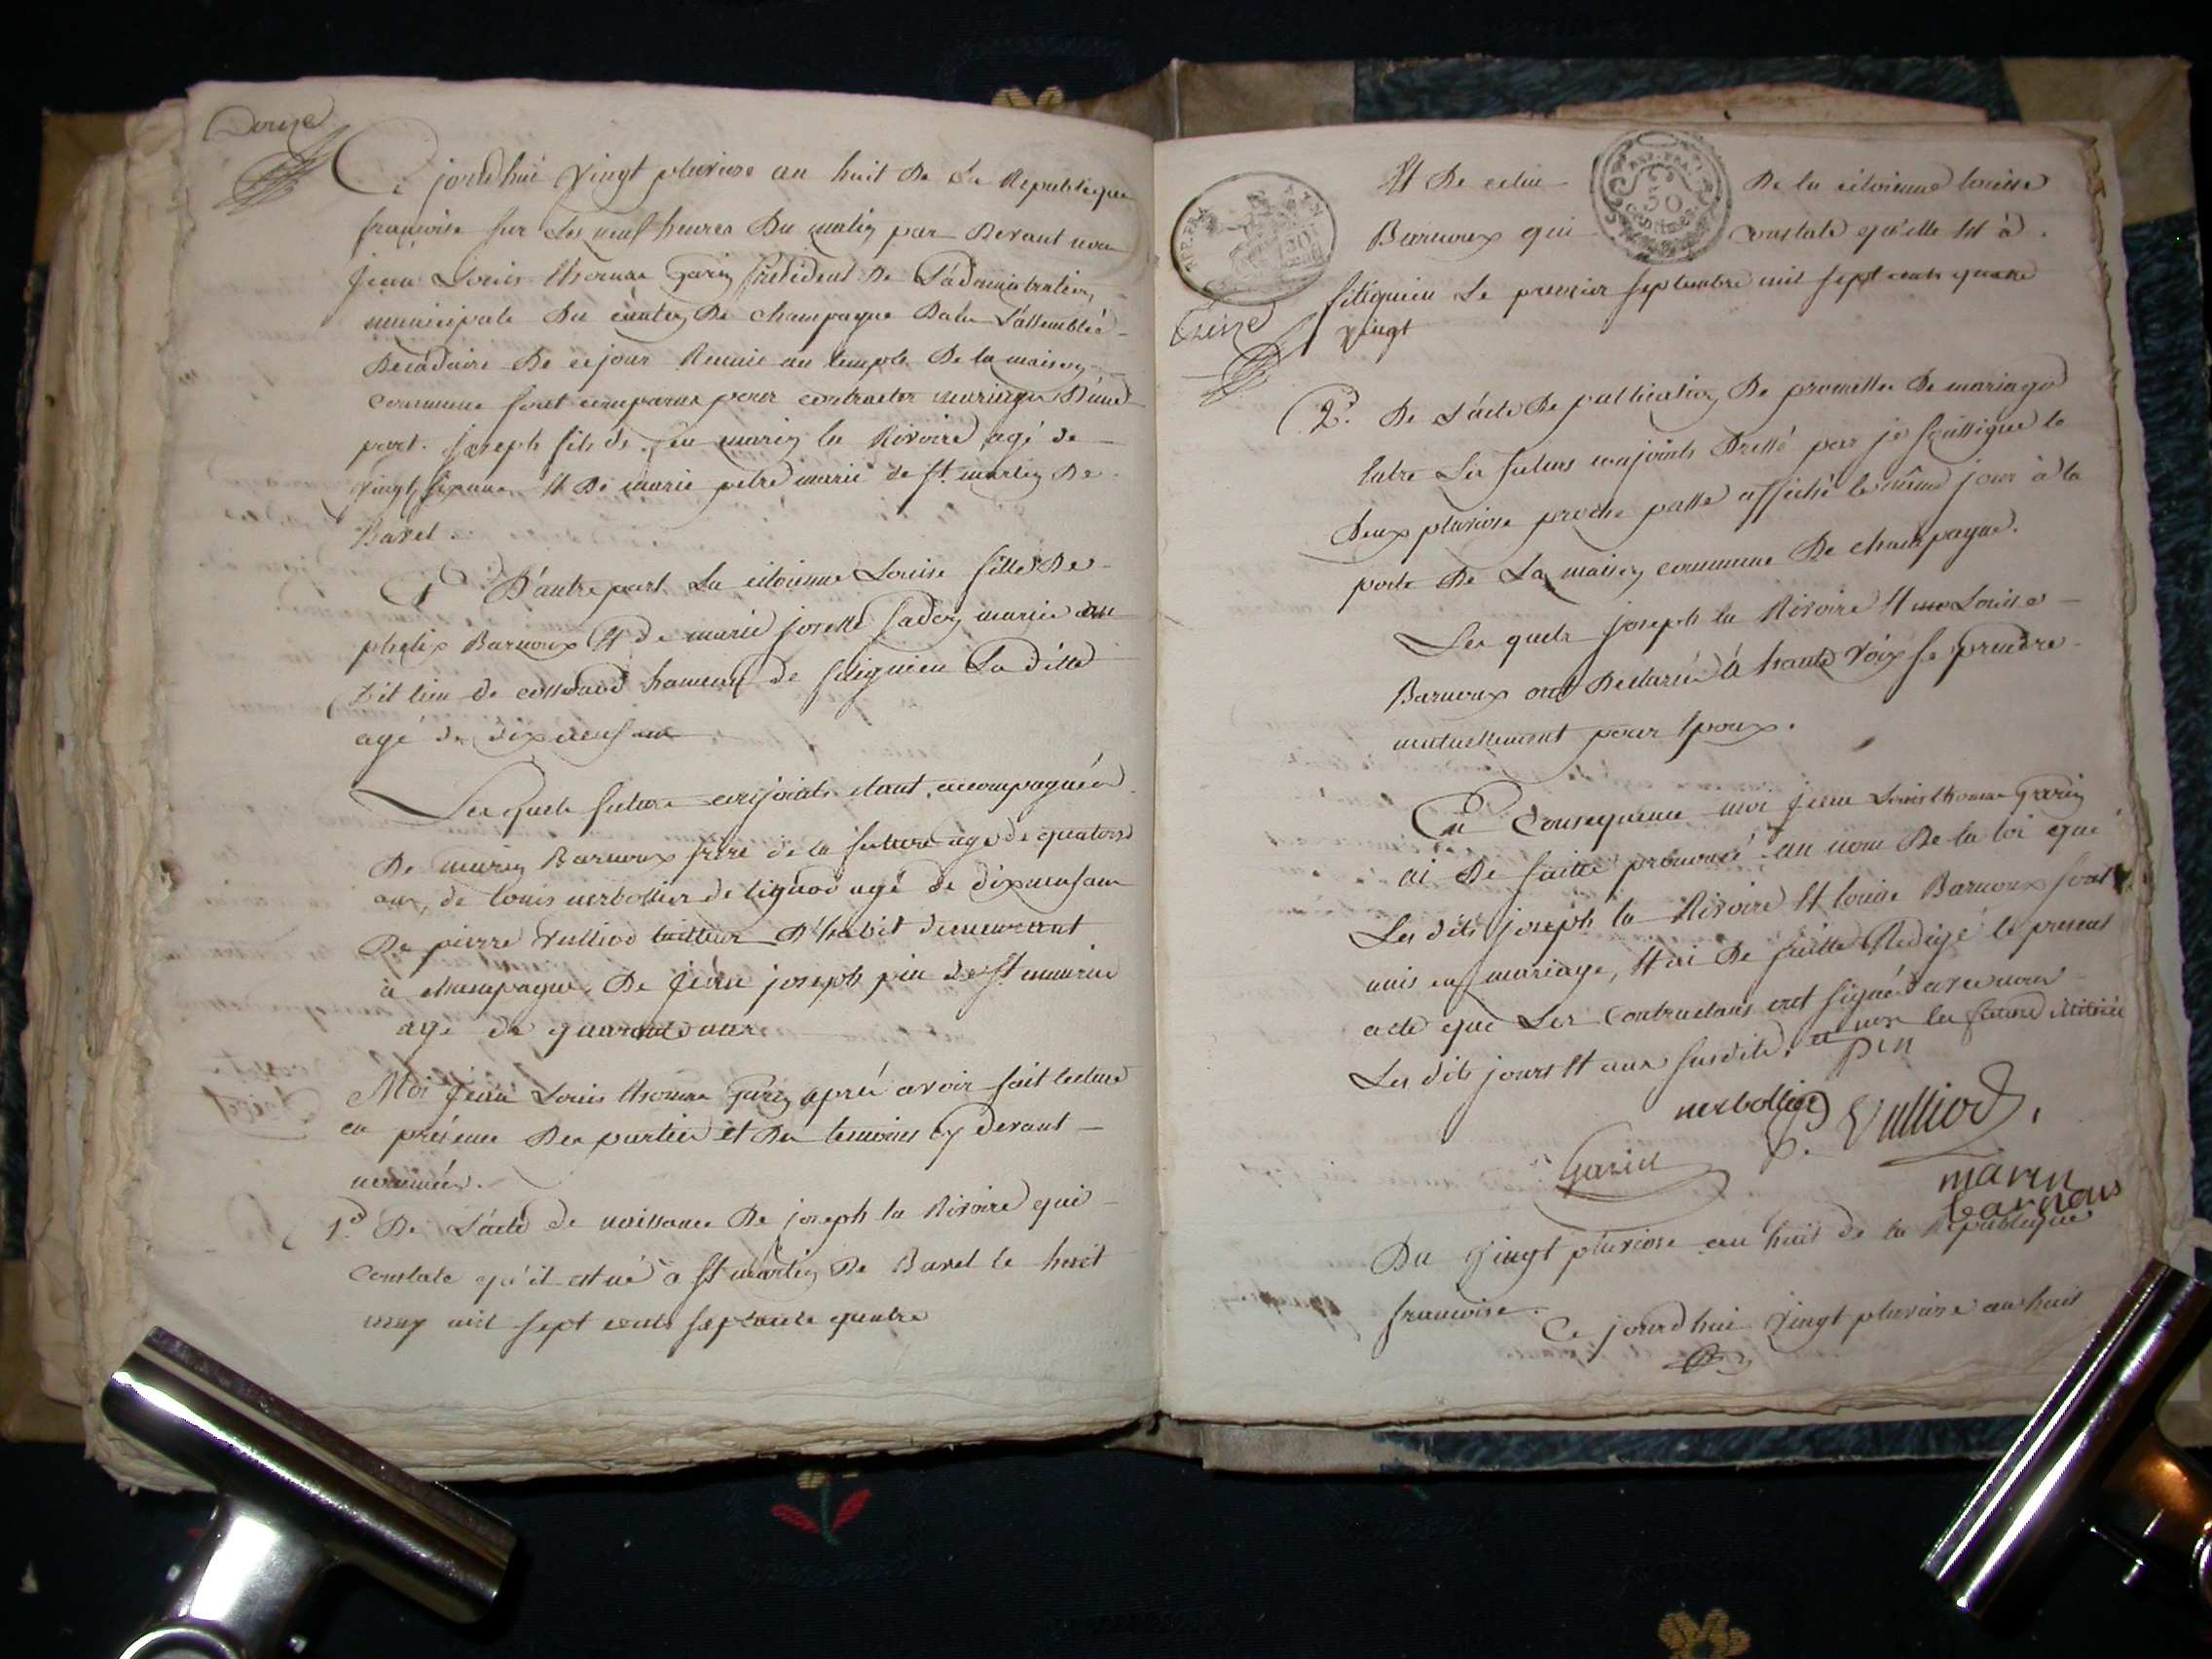 Douze
Ce jourdhui vingt pluviose an huit De La Republique
francoise sur Les neuf heures Du matin par Devant nous
jean Louis thomas Garin president De L'administration
municipale Du canton De champagne Dans L'assemblée
Decadaire De ce jour Reunie au temple De la maison
commune sont comparus pour contracter mariage D'une
part. joseph fils de feu marin la Rivoire agé de
vingt six ans Et De marie petre marié de St. martin De
Bavel.
Et D'autre part La citoienne Louise fille De
phelix Barnoux Et de marie josette mariée au
Dit lieu de hameau de sitignieu La ditte
agé de dix neuf ans
Les quels futurs conjoints etant accompagnés
De marin Barnoux frere de la future agé de quatorze
ans, de louis nerbollier de lignod agé de dix neuf ans
De pierre Vulliod tailleur D'habit demeurant
à champagne, De jean joseph pin de St. maurice
agé de quarante ans
Moi jean Louis thomas Garin aprés avoir fait lecture
en présence Des parties et Des temoins cy devant
nommés.
1.º De L'acte de naissance De joseph la Rivoire qui
constate qu'il est né à St martin De Bavel le huit
may mil sept cents septante quatre
REP. FRA.
AIN
30 CENT.
REP. FRA.
50 CENTIMES
Treize
Et De celui De la citoienne louise
Barnoux qui constate qu'elle Est à
sitignieu Le premier septembre mil sept cents quatre
vingt
2.º De L'acte De publication De promesse De mariage
Entre Les futurs conjoints Dressé par je soussigné le
Deux pluviose proche passé affiché le même jour à la
porte De La maison commune De champagne.
Les quels joseph la Rivoire Et Louise
Barnoux ont Declarés à haute voix se prendre
mutuellement pour Epoux.
En Consequence moi jean Louis thomas Garin
ai De suitte prononcé au nom De la loi que
Les dits joseph la Rivoire Et louise Barnoux sont
unis en mariage, Et ai De suitte Redigé le present
acte que Les contractans ont signé avec nous
Les dits jours Et ans susdits, et non la future illitérée
pin
nerbollier
P. Vulliod,
Garin
marin
barnous
Du vingt pluviose an huit de la Republique
francoise.
Ce jourdhui vingt pluviose an huit